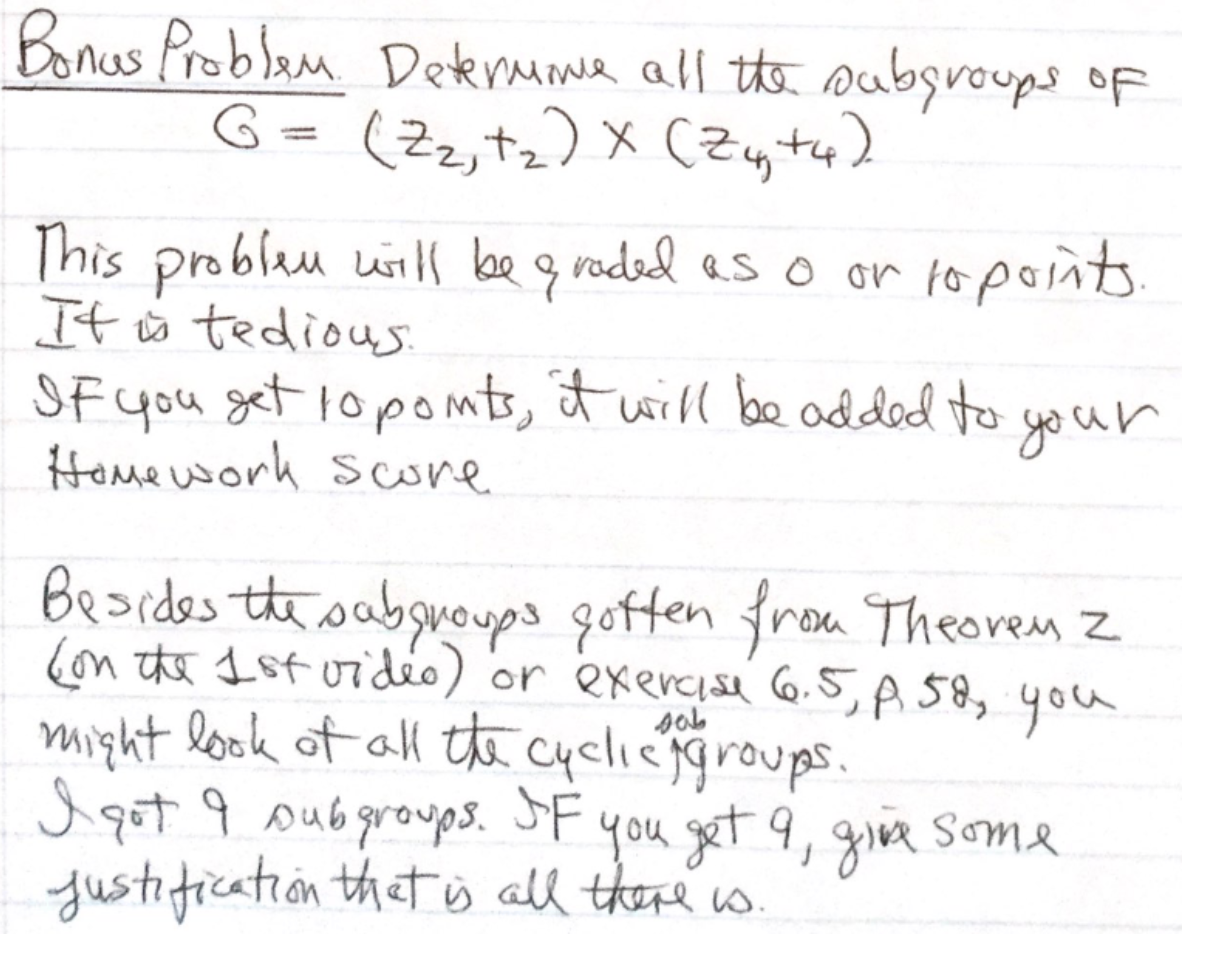 Bonus Problem. Determine all the subgroups of
G = (Z₂, +₂) × (Z₄, +₄).
This problem will be graded as 0 or 10 points.
It is tedious.
If you get 10 points, it will be added to your
Homework score
Besides the subgroups gotten from Theorem 2
(on the 1st video) or exercise 6.5, p 58, you
might look at all the cyclic subgroups.
I got 9 subgroups. If you get 9, give some
justification that is all there is.